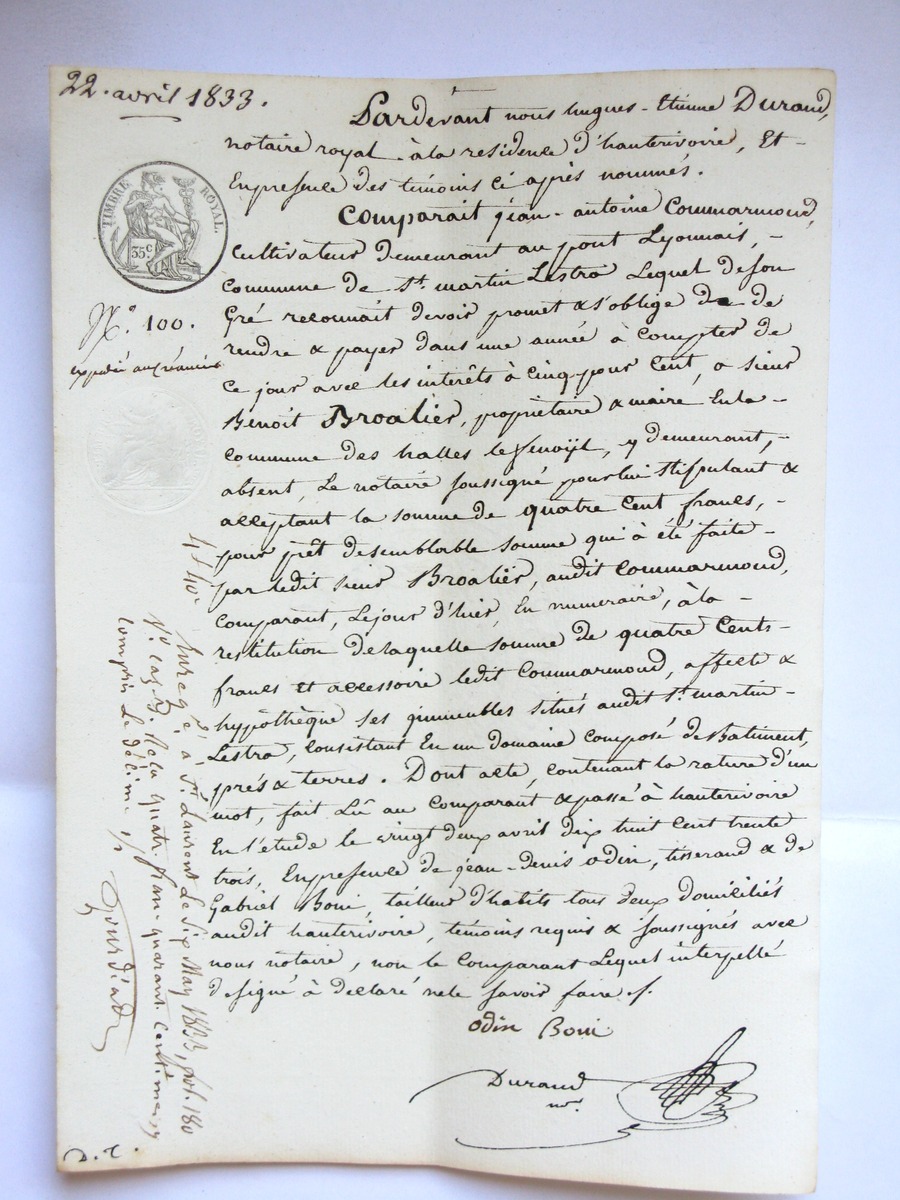 22. avril 1833.
Pardevant nous hugues-Etienne Durand,
notaire royal à la residence d'hauterivoire, Et
En presence des témoins ci après nommés.
Comparait jean-antoine Commarmond,
TIMBRE ROYAL.
35c
cultivateur demeurant au pont Lyonnais,
commune de St. martin Lestra Lequel de son
Gré reconnait devoir promet & s'oblige de
No. 100.
rendre & payer dans une année à compter de
ce jour avec les interêts à cinq pour cent, a sieur
Benoît Broalier, propriétaire & maire En la
commune des halles le fenoÿl, y demeurant,
absent, Le notaire soussigné pour lui stipulant &
acceptant la somme de quatre cent francs,
pour prêt de semblable somme qui a été faite
par ledit sieur Broalier, audit Commarmond,
comparant, Le jour d'hier, En numeraire, à la
restitution de laquelle somme de quatre Cents
francs et accessoire ledit Commarmond, affecte &
hypôthèque ses immeubles situés audit St. martin
Lestra, consistant En un domaine composé de Batiment,
prés & terres. Dont acte, contenant la rature d'un
mot, fait Lû au Comparant & passé à hauterivoire
En l'étude le vingt deux avril dix huit Cent trente
trois, En presence de jean-denis odin, tisserand & de
Gabriel Boni, tailleur d'habits tous deux domiciliés
audit hauterivoire, témoins requis & soussignés avec
nous notaire, non le Comparant Lequel interpellé
de signé à declaré ne le savoir faire
odin Boni
Durand
nre.
4f 40c
Enregé. à St. Laurent Le Six May 1833, fol. 180
Vo. cas. 9. Reçu quatre francs quarante centimes
compris Le décime
D. T.